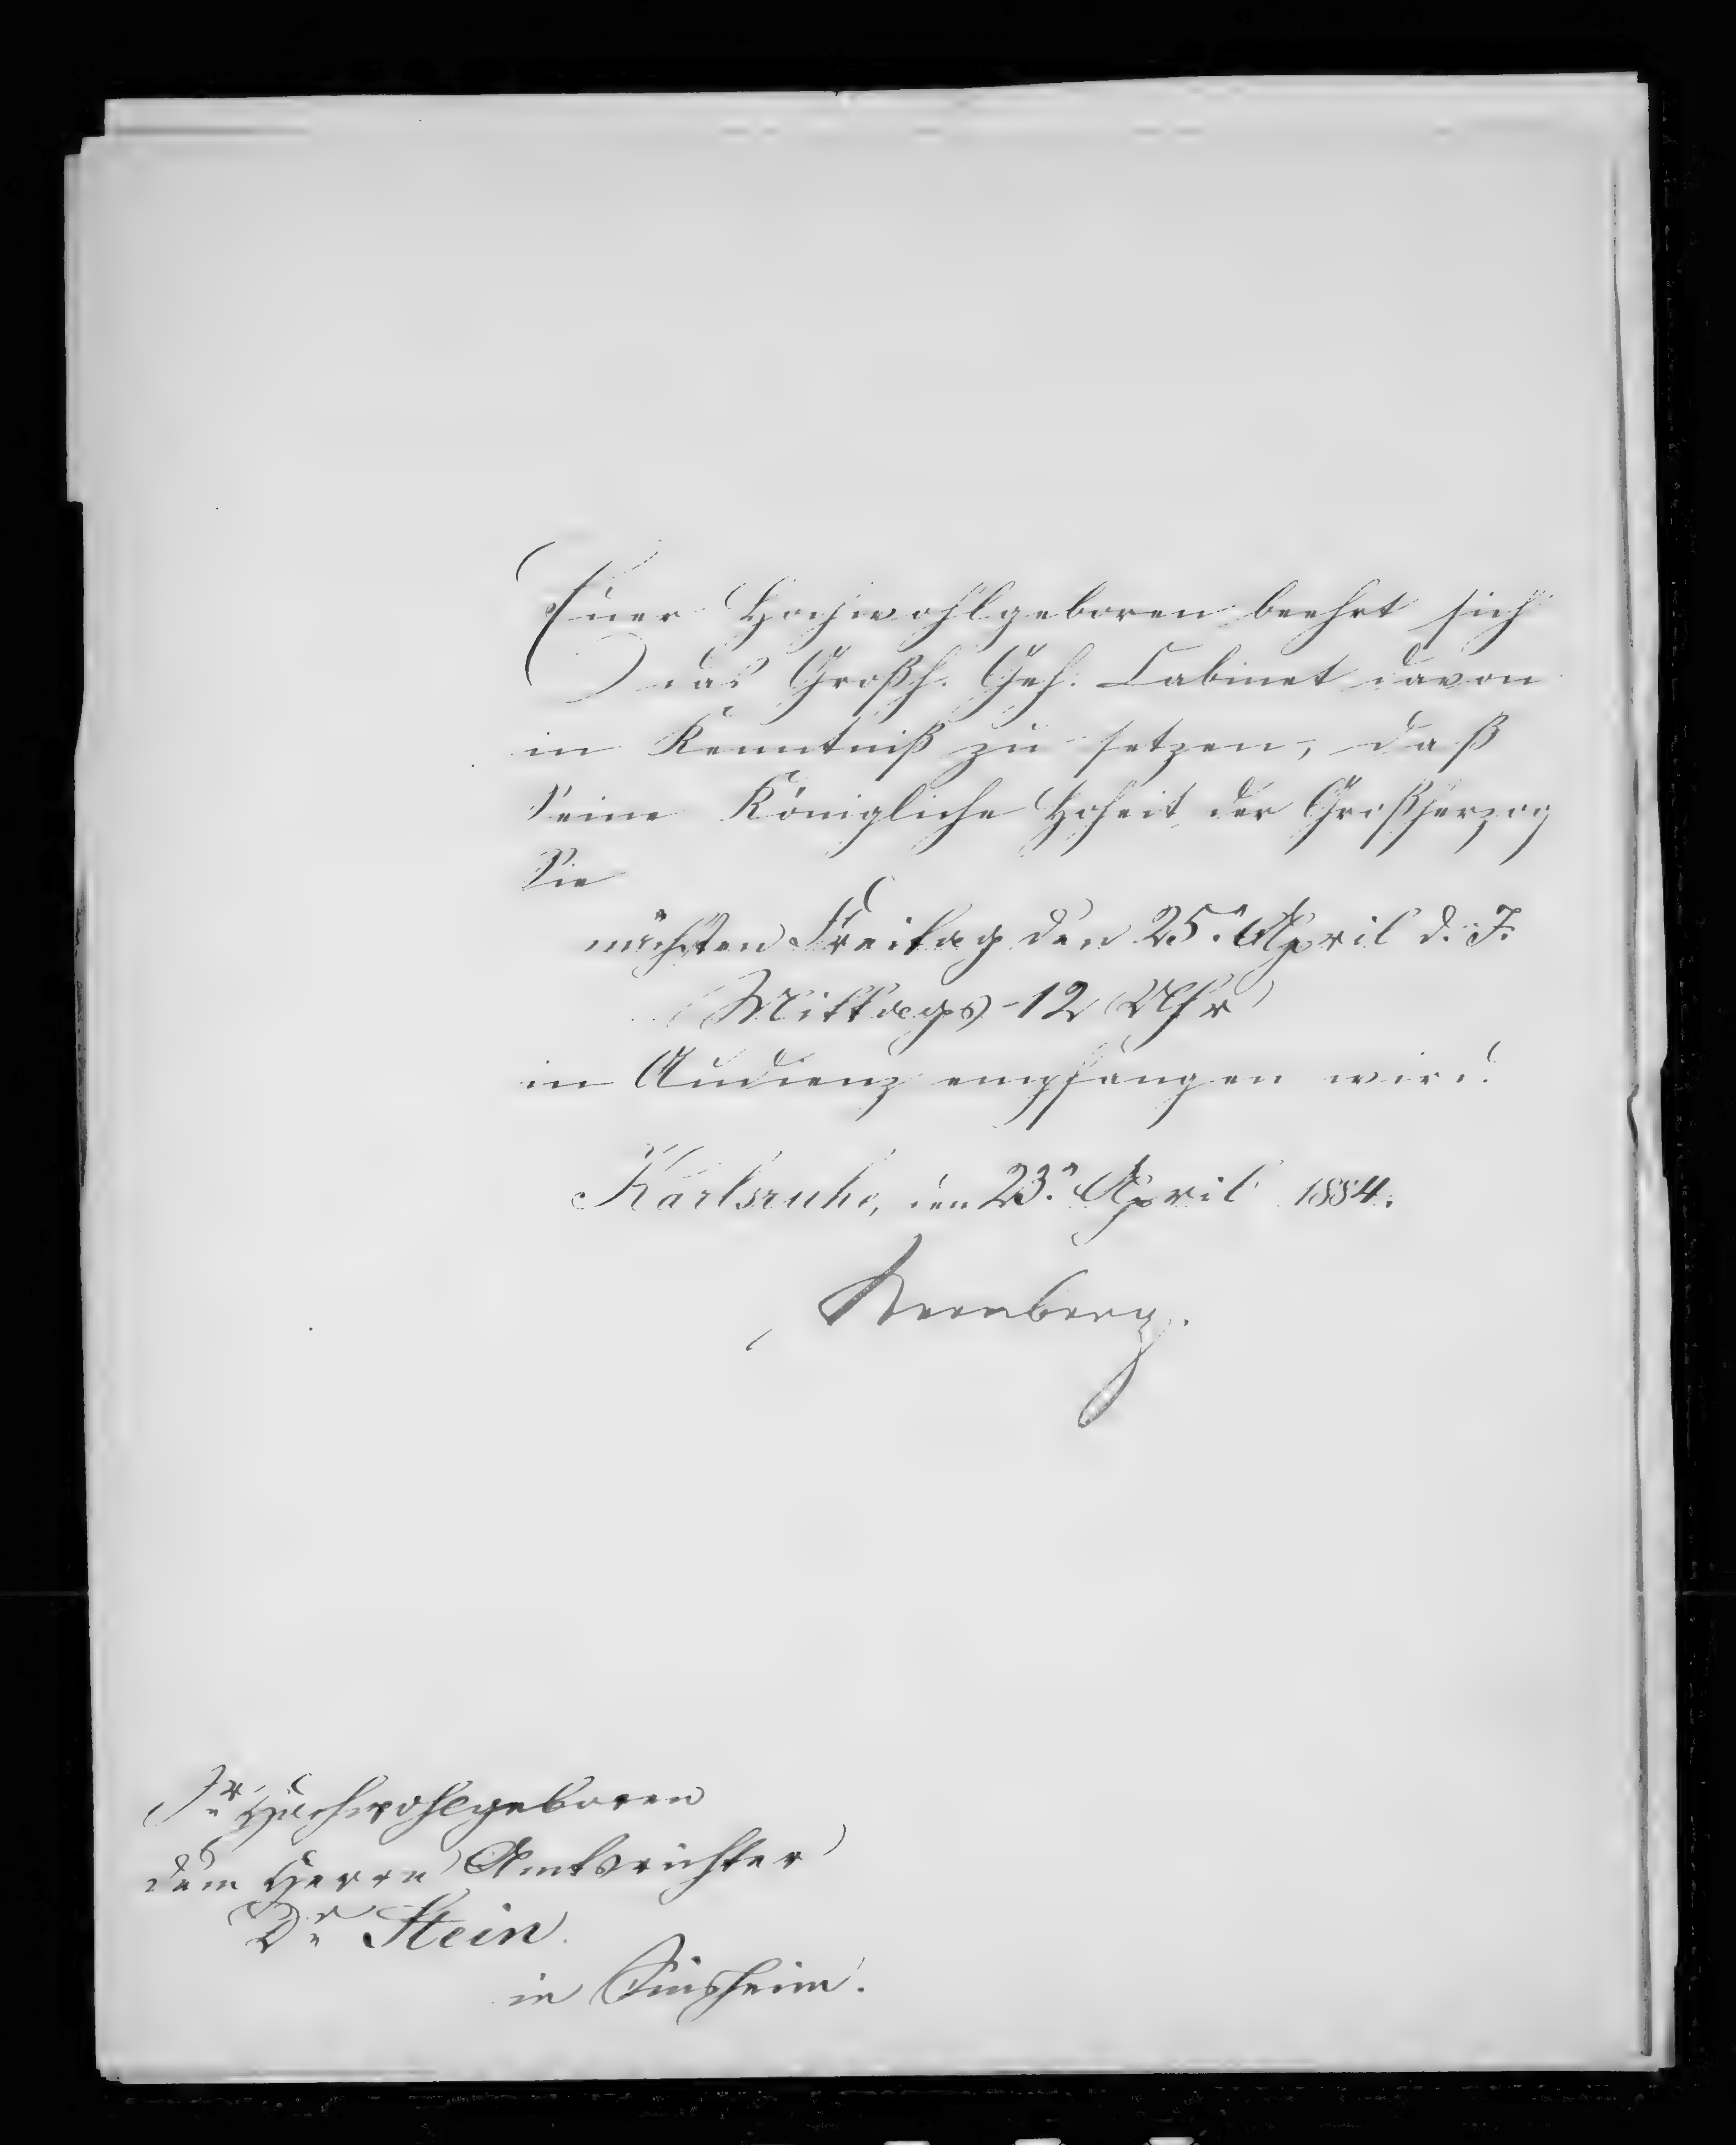 Euer Hochwohlgeboren beehrt sich
das Großh. Geh. Cabinet davon
in Kenntniß zu setzen, daß
Seine Königliche Hoheit der Großherzog
Sie
nächsten Freitag den 25. April d. J.
Mittags 12 Uhr
in Audienz empfangen wird.
Karlsruhe, den 23. April 1884.
Sr Hochwohlgeboren
dem Herrn Amtsrichter
Dr Stein
in Sinsheim.